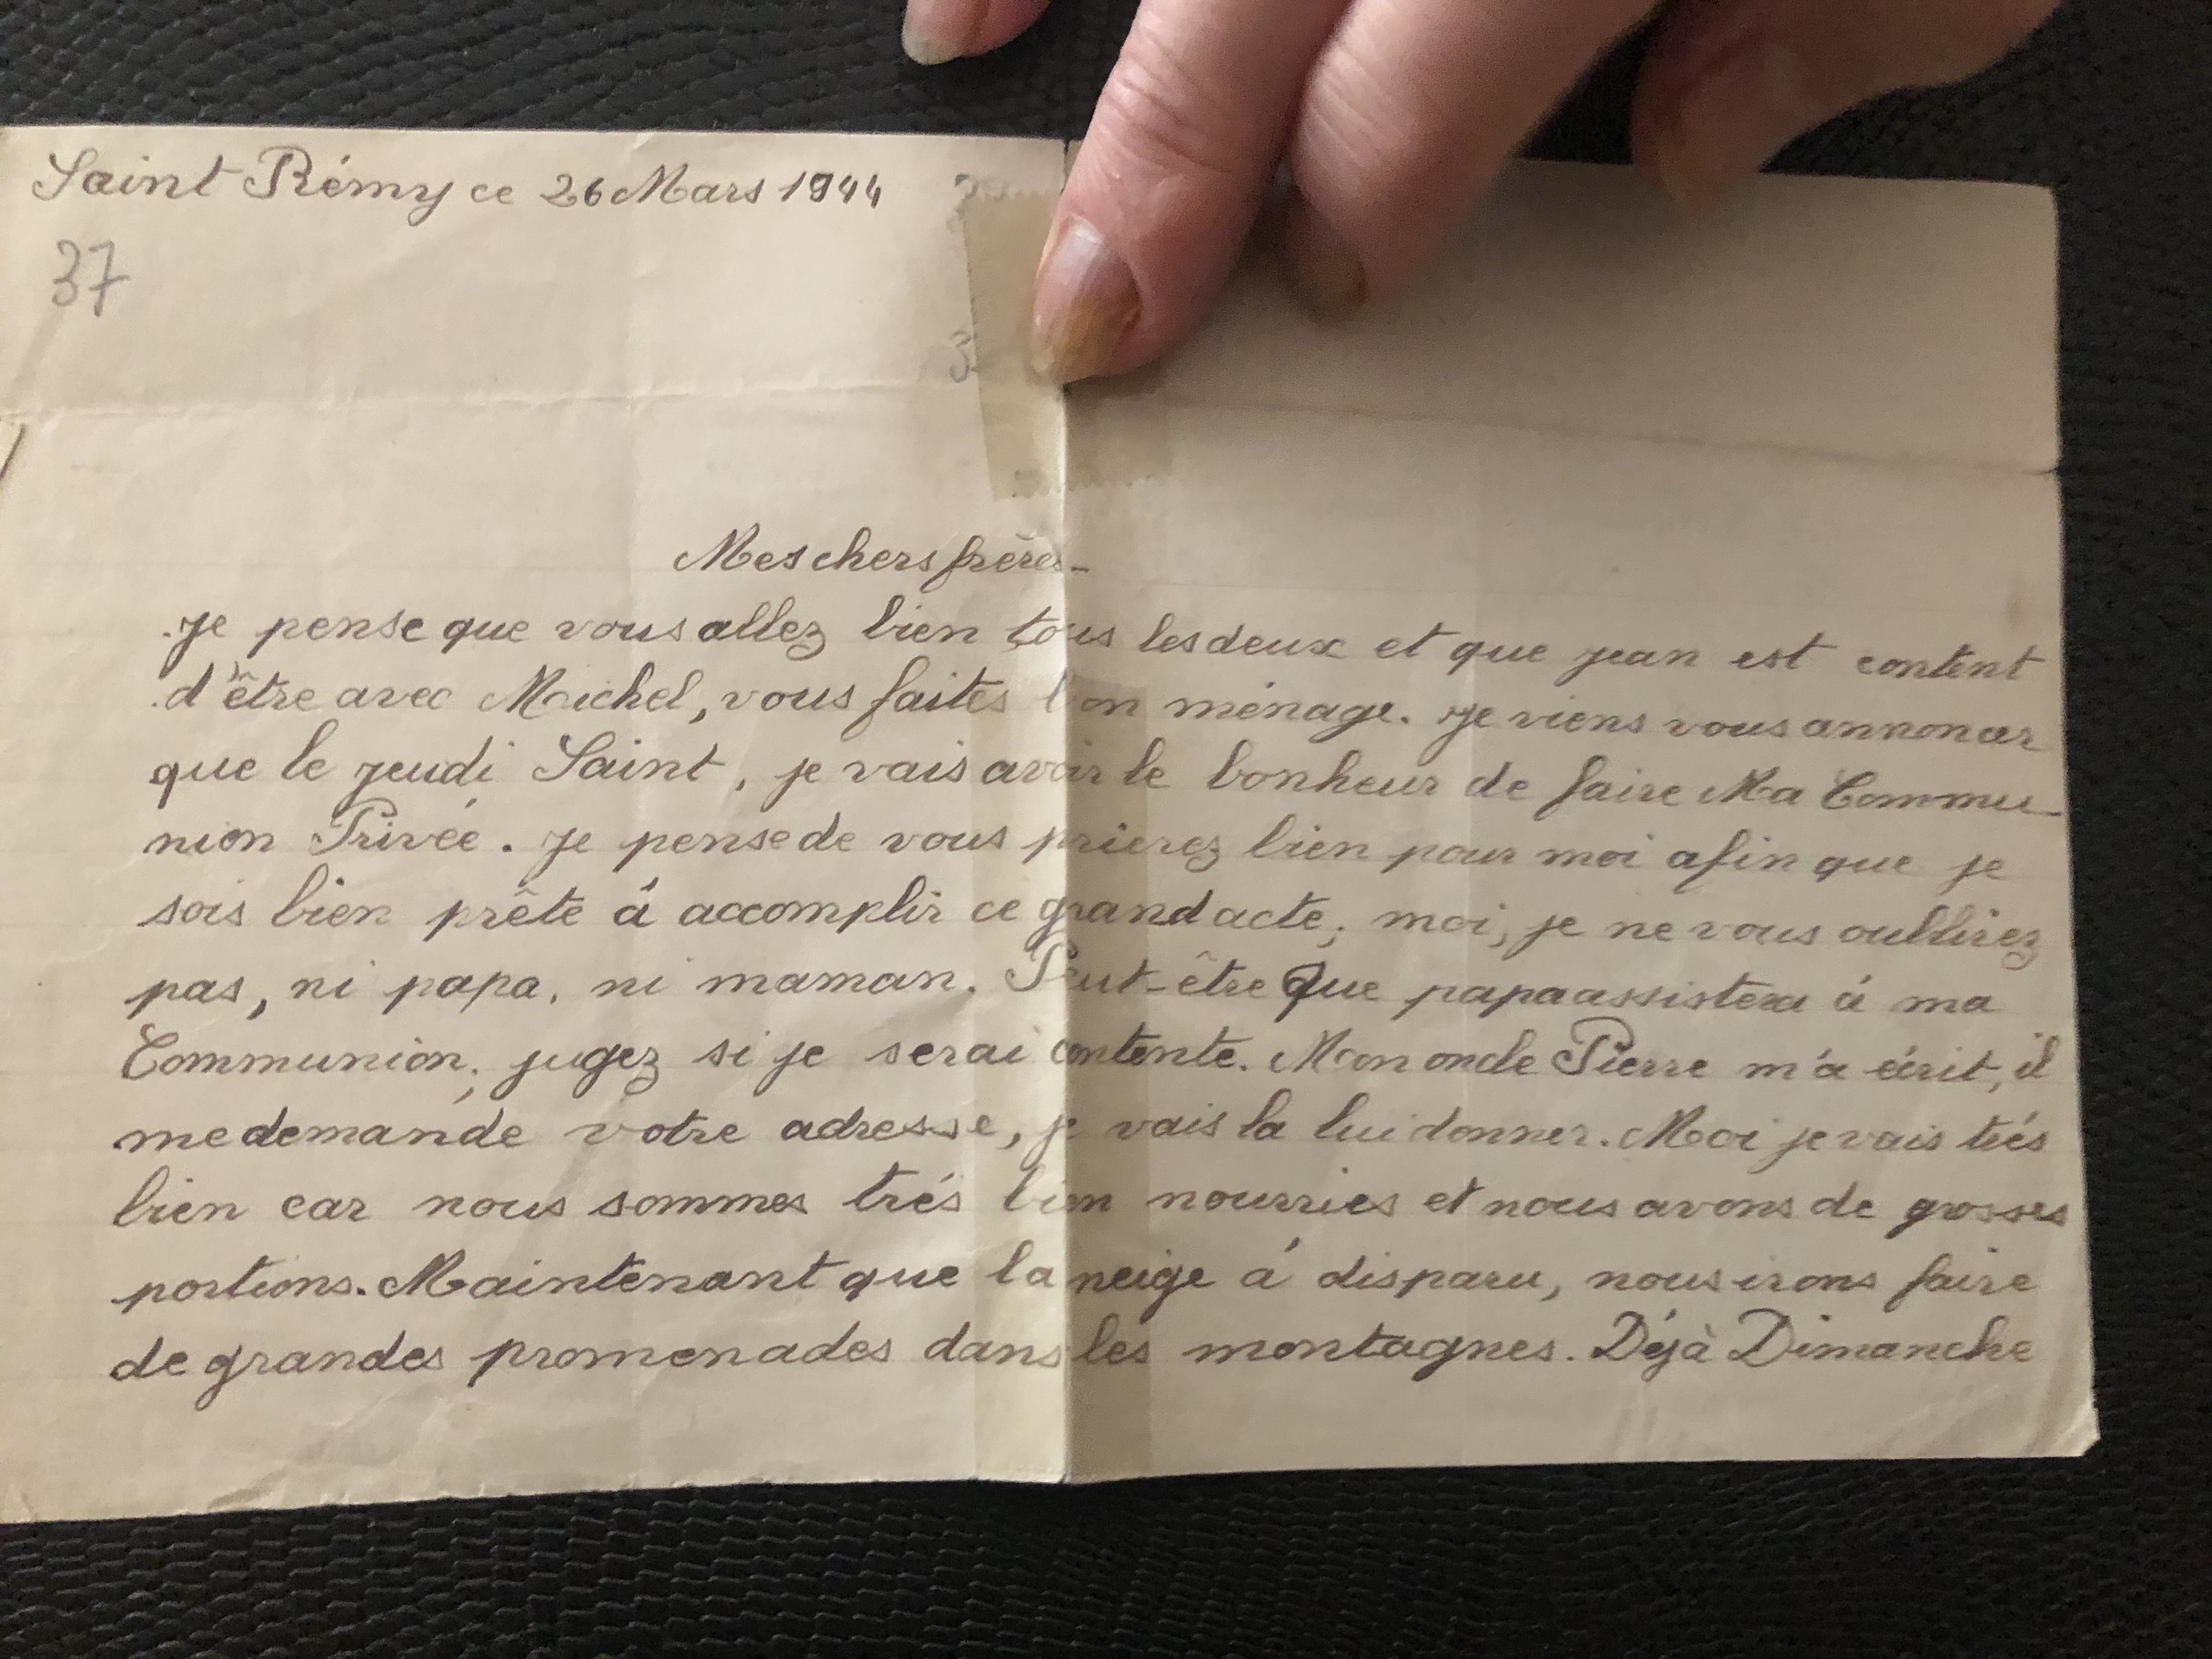 Saint Rémy ce 26 Mars 1944
37
Mes chers frères -
Je pense que vous allez bien tous les deux et que jean est content
d'être avec Michel, vous faites bon ménage. Je viens vous annoncer
que le jeudi Saint, je vais avoir le bonheur de faire Ma Commu-
nion Privée. Je pense de vous prierez bien pour moi afin que je
sois bien prête á accomplir ce grand acte; moi, je ne vous oublirez
pas, ni papa, ni maman. Peut-être Que papa assistera á ma
Communion; jugez si je serai contente. Mon oncle Pierre m'a écrit, il
me demande votre adresse, je vais la lui donner. Moi je vais trés
bien car nous sommes trés bien nourries et nous avons de grosses
portions. Maintenant que la neige á disparu, nous irons faire
de grandes promenades dans les montagnes. Déjà Dimanche